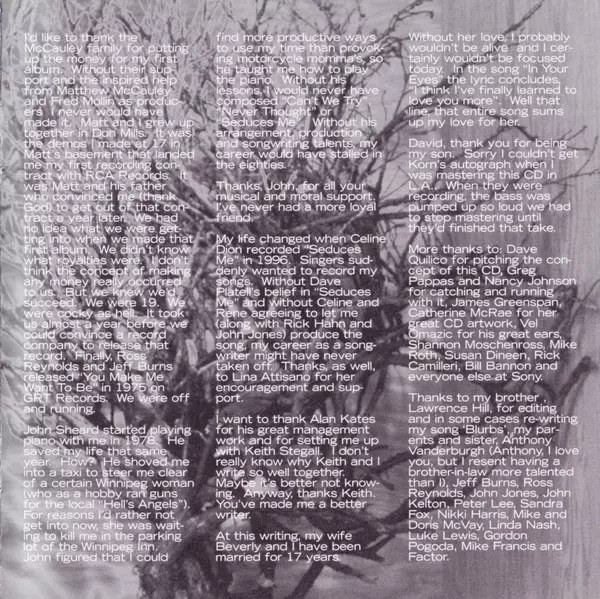 I'd like to thank the
McCauley family for putting
up the money for my first
album. Without their sup-
port and the inspired help
from Matthew McCauley
and Fred Mollin as produc-
ers I never would have
made it. Matt and I grew up
together in Don Mills. It was
the demos I made at 17 in
Matt's basement that landed
me my first recording con-
tract with RCA Records. It
was Matt and his father
who convinced me (thank
God) to get out of that con-
tract a year later. We had
no idea what we were get-
ting into when we made that
first album. We didn't know
what royalties were. I don't
think the concept of making
any money really occurred
to us. But we knew we'd
succeed. We were 19. We
were cocky as hell. It took
us almost a year before we
could convince a record
company to release that
record. Finally, Ross
Reynolds and Jeff Burns
released "You Make Me
Want To Be" in 1975 on
GRT Records. We were off
and running.

John Sheard started playing
piano with me in 1978. He
saved my life that same
year. How? He shoved me
into a taxi to steer me clear
of a certain Winnipeg woman
(who as a hobby ran guns
for the local "Hell's Angels").
For reasons I'd rather not
get into now, she was wait-
ing to kill me in the parking
lot of the Winnipeg Inn.
John figured that I could
find more productive ways
to use my time than provok-
ing motorcycle momma's, so
he taught me how to play
the piano. Without his
lessons, I would never have
composed "Can't We Try",
"Never Thought" or
"Seduces Me". Without his
arrangement, production
and songwriting talents, my
career would have stalled in
the eighties.

Thanks, John, for all your
musical and moral support.
I've never had a more loyal
friend.

My life changed when Celine
Dion recorded "Seduces
Me" in 1996. Singers sud-
denly wanted to record my
songs. Without Dave
Platel's belief in "Seduces
Me" and without Celine and
Rene agreeing to let me
(along with Rick Hahn and
John Jones) produce the
song, my career as a song-
writer might have never
taken off. Thanks, as well,
to Lina Attisano for her
encouragement and sup-
port.

I want to thank Alan Kates
for his great management
work and for setting me up
with Keith Stegall. I don't
really know why Keith and I
write so well together.
Maybe it's better not know-
ing. Anyway, thanks Keith.
You've made me a better
writer.

At this writing, my wife
Beverly and I have been
married for 17 years.
Without her love, I probably
wouldn't be alive and I cer-
tainly wouldn't be focused
today. In the song "In Your
Eyes" the lyric concludes,
"I think I've finally learned to
love you more". Well that
line, that entire song sums
up my love for her.

David, thank you for being
my son. Sorry I couldn't get
Korn's autograph when I
was mastering this CD in
L.A. When they were
recording, the bass was
pumped up so loud we had
to stop mastering until
they'd finished that take.

More thanks to: Dave
Quilico for pitching the con-
cept of this CD, Greg
Pappas and Nancy Johnson
for catching and running
with it, James Greenspan,
Catherine McRae for her
great CD artwork, Vel
Omazic for his great ears,
Shannon Moscheross, Mike
Roth, Susan Dineen, Rick
Camilleri, Bill Bannon and
everyone else at Sony.

Thanks to my brother ,
Lawrence Hill, for editing
and in some cases re-writing
my song 'Blurbs', my par-
ents and sister, Anthony
Vanderburgh (Anthony, I love
you, but I resent having a
brother-in-law more talented
than I), Jeff Burns, Ross
Reynolds, John Jones, John
Kelton, Peter Lee, Sandra
Fox, Nikki Harris, Mike and
Doris McVay, Linda Nash,
Luke Lewis, Gordon
Pogoda, Mike Francis and
Factor.